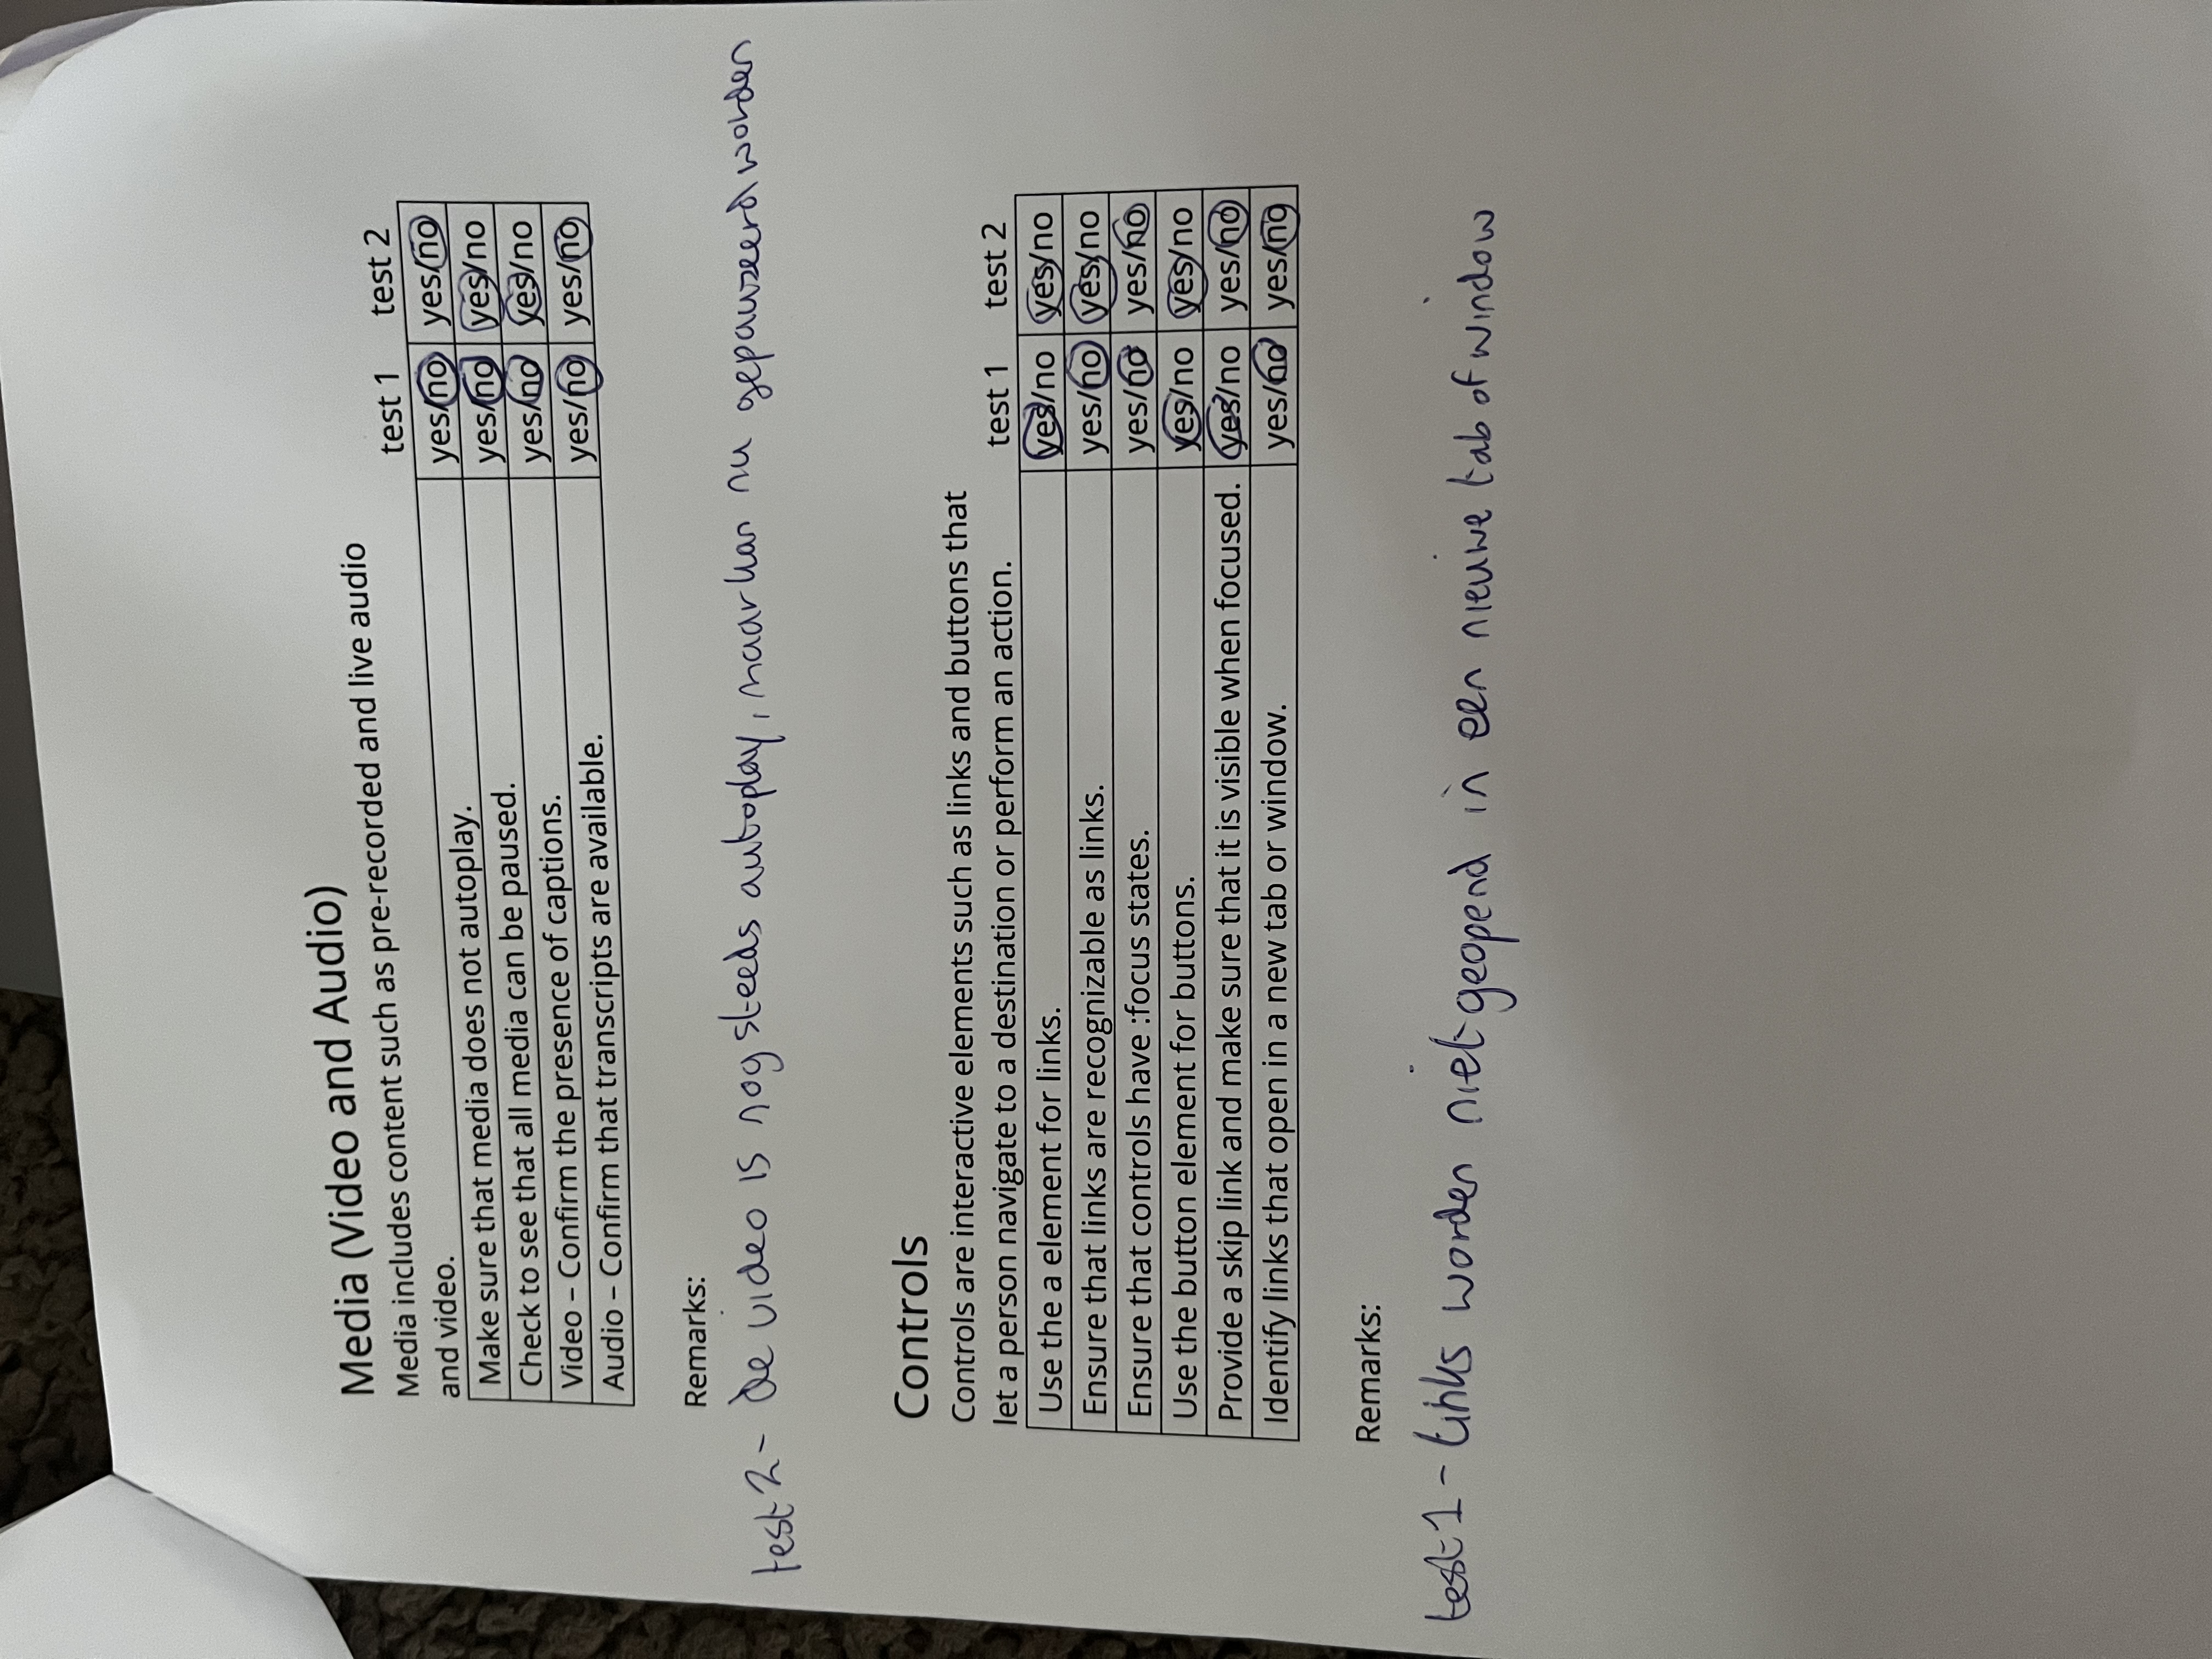 Media (Video and Audio)
Media includes content such as pre-recorded and live audio
and video.
test 1 test 2
Make sure that media does not autoplay. yes/no yes/no
Check to see that all media can be paused. yes/no yes/no
Video – Confirm the presence of captions. yes/no yes/no
Audio – Confirm that transcripts are available. yes/no yes/no
Remarks:
test 2 - de video is nog steeds autoplay, maar kan nu gepauzeerd worden
Controls
Controls are interactive elements such as links and buttons that
let a person navigate to a destination or perform an action. test 1 test 2
Use the a element for links. yes/no yes/no
Ensure that links are recognizable as links. yes/no yes/no
Ensure that controls have :focus states. yes/no yes/no
Use the button element for buttons. yes/no yes/no
Provide a skip link and make sure that it is visible when focused. yes/no yes/no
Identify links that open in a new tab or window. yes/no yes/no
Remarks:
test 1 - Links worden niet geopend in een nieuwe tab of window